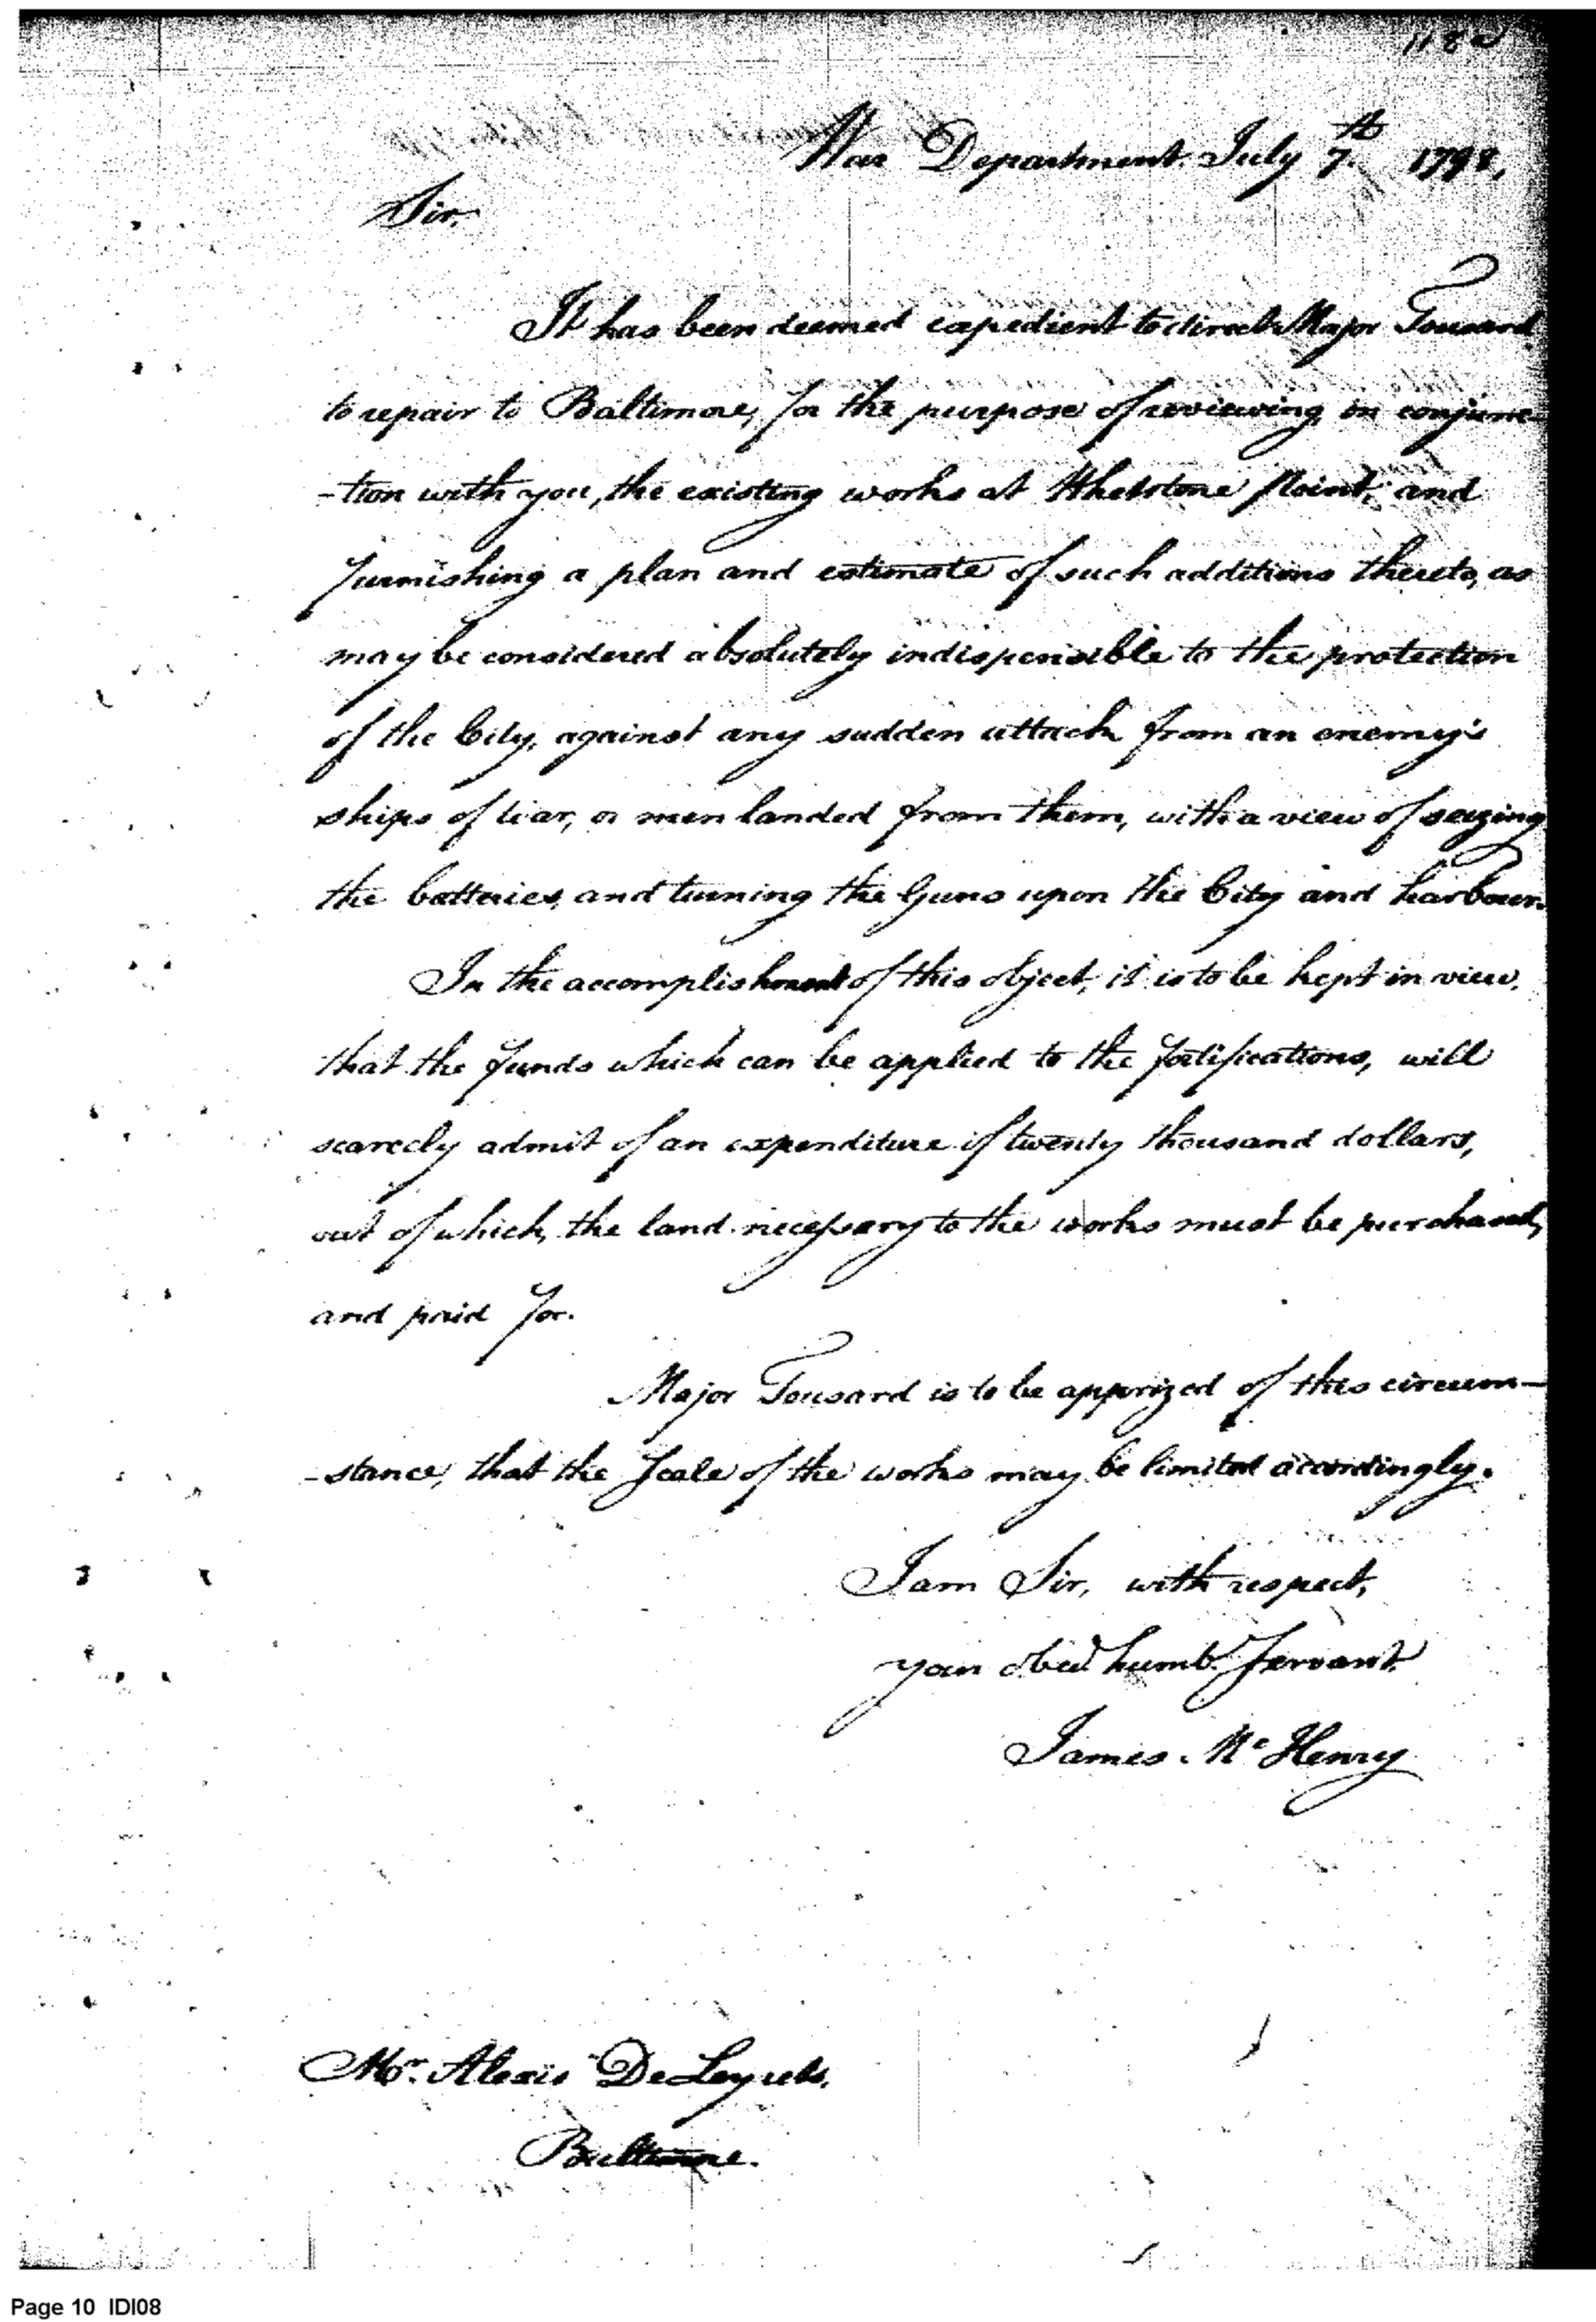 War Department July 7th 1798.
Sir.
It has been deemed expedient to direct Major Tousard
to repair to Baltimore, for the purpose of reviewing in conjunc-
-tion with you, the existing works at Whetstone Point, and
furnishing a plan and estimate of such additions thereto, as
may be considered absolutely indispensible to the protection
of the City, against any sudden attack from an enemy's
ships of war, or men landed from them, with a view of seizing
the batteries, and turning the Guns upon the City and harbour.
In the accomplishment of this object, it is to be kept in view,
that the funds which can be applied to the fortifications, will
scarcely admit of an expenditure of twenty thousand dollars,
out of which, the land necessary to the works must be purchased,
and paid for.
Major Tousard is to be apprized of this circum-
-stance, that the Scale of the works may be limited accordingly.
I am Sir, with respect,
your obed humb. Servant.
James McHenry
Mr. Alexis De Leyritz.
Baltimore.
Page 10 IDI08